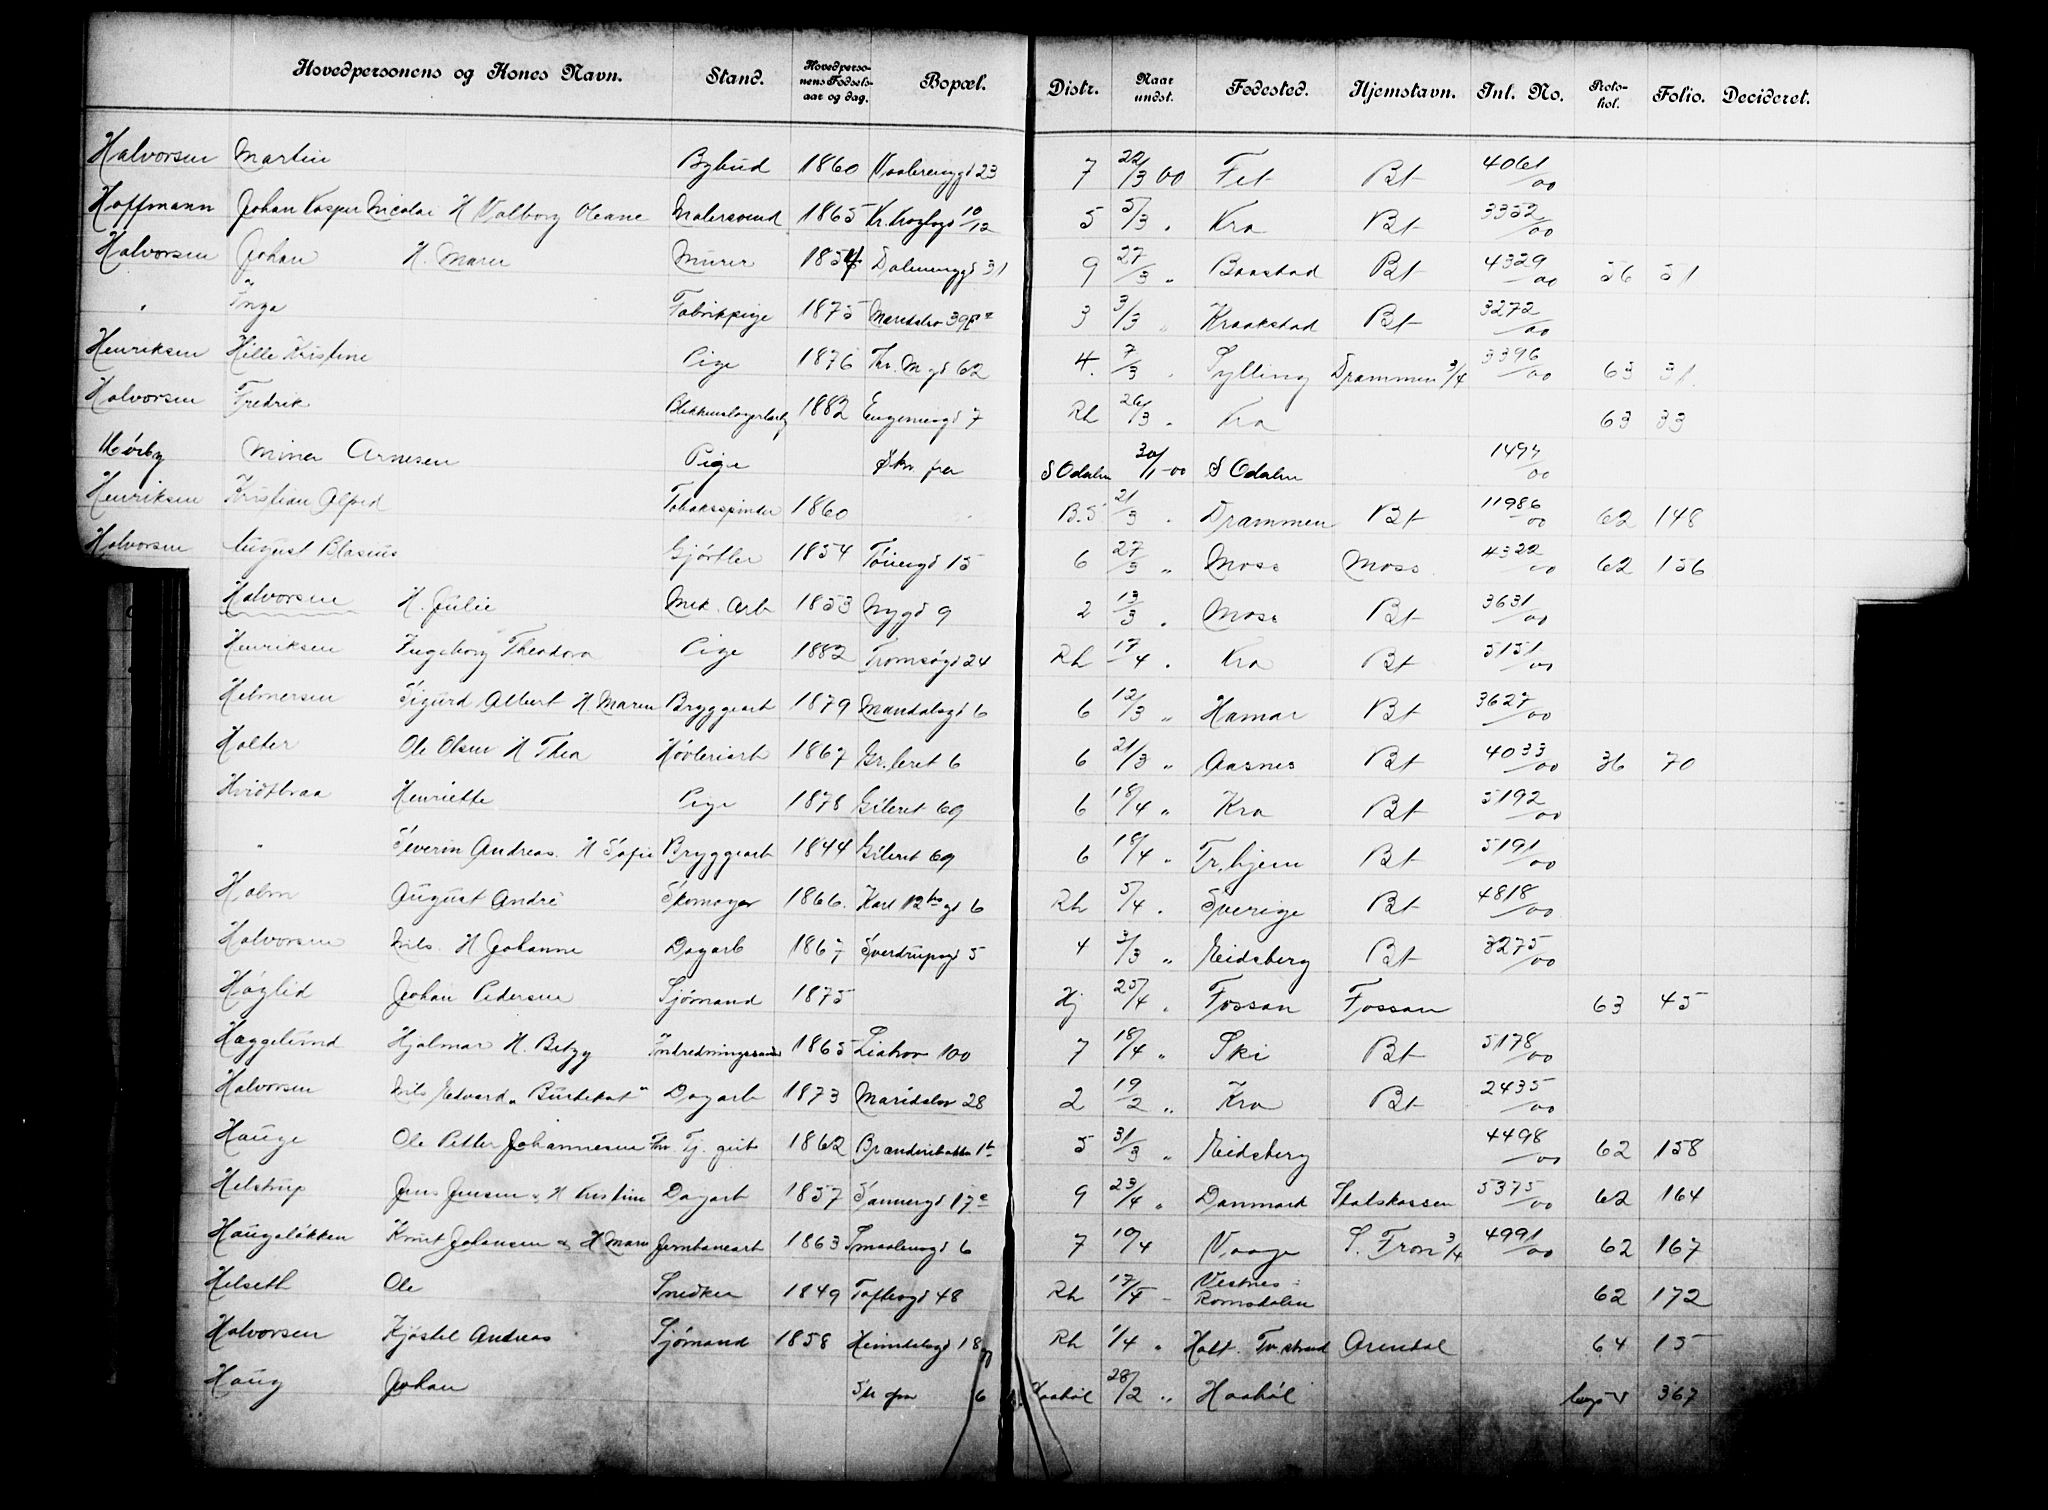 Hovedpersonens og Kones Navn. Stand. Hovedpersonens Fødselsaar og dag. Bopæl. Distr. Naar undst. Fødested. Hjemstavn. Inl. No. Protokol. Folio. Decideret.
Halvorsen Martin Bybud 1860 Vaalerenggd 23 7 22/3 00 Fet Bt 4061/00
Hoffmann Johan Kasper Nicolai H Valborg Oleane Malersvend 1865 Kr. Kroghsgd 10/12 5 5/3 " Kra Bt 3352/00
Halvorsen Johan H. Maren Murer 1854 Dalenenggd 31 9 27/3 " Baastad Bt 4329/00 56 51
" Inga Fabrikpige 1875 Maridalsv 39 3 3/3 " Kraakstad Bt 3272/00
Henriksen Hille Kristine Pige 1876 Thv. M gd 62 4. 7/3 " Sylling Drammen 3/4 3396/00 63 31.
Halvorsen Fredrik Blikkenslagerlærl 1882 Eugeniesgd 7 Rh 26/3 " Kra 63 33
Mörby Mina Arnesen Pige Skr. fra S Odalen 30/1-00 S Odalen 1497/00
Henriksen Kristian Alfred Tobaksspinder 1860 B.5 21/3 " Drammen Bt 11986/00 62 148
Halvorsen August Blasius Gjørtler 1854 Töiengd 15 6 27/3 " Moss Moss 4322/00 62 156
Halvorsen H. Julie Mek. Arb 1853 Nygd 9 2 13/3 " Moss Bt 3631/00
Henriksen Ingeborg Theodora Pige 1882 Tromsögd 24 Rh 17/4 " Kra Bt 5151/00
Helmersen Sigurd Albert H. Maren Bryggearb 1879 Mandalsgd 6 6 12/3 " Hamar Bt 3627/00
Holter Ole Olsen H Thea Hövleriarb 1867 Gr. leret 6 6 21/3 " Aasnes Bt 4033/00 36 70
Hvidtbraa Henriette Pige 1878 Gr leret 69 6 18/4 " Kra Bt 5192/00
" Severin Andreas. H Sofie Bryggearb 1844 Gr leret 69 6 18/4 " Tr.hjem Bt 5191/00
Holm August André Skomager 1866. Karl 12tes gd 6 Rh 5/4 " Sverige Bt 4818/00
Halvorsen Nils. H Johanne Dagarb 1867 Sverdrupsgd 5 4 3/3 " Eidsberg Bt 3275/00
Höglid Johan Pedersen Sjömand 1875 Hj 25/4 " Fossan Fossan 63 45
Hæggelund Hjalmar H. Betzy Indredningssnedk 1865 Liabrov 100 7 18/4 " Ski Bt 5178/00
Halvorsen Nils Edvard "Burtekat" Dagarb 1873 Maridalsv 28 2 19/2 " Kra Bt 2435/00
Hauge Ole Petter Johannesen Thv Tj. gut 1862 Brænderibakken 1b 5 31/3 " Eidsberg 4498/00 62 158
Helstrup Jens Jensen & H Kristine Dagarb 1857 Sannergd 17c 9 23/4 " Danmark Statskassen 5375/00 62 164
Haugsløkken Knut Johansen & H Mari Jernbanearb 1863 Smaalensgd 6 7 10/4 Vaage S. Fron 3/4 4991/00 62 167
Helseth Ole Snedker 1849 Toftesgd 48 Rh 17/4 - Vestnes - Romsdalen 62 172
Halvorsen Kjöstel Andreas Sjömand 1858 Heimdalsgd 18 Rh 1/4 " Holt. Tv.strand Arendal 64 15
Haug Johan Sk fra Haaböl 28/2 " Haaböl 367